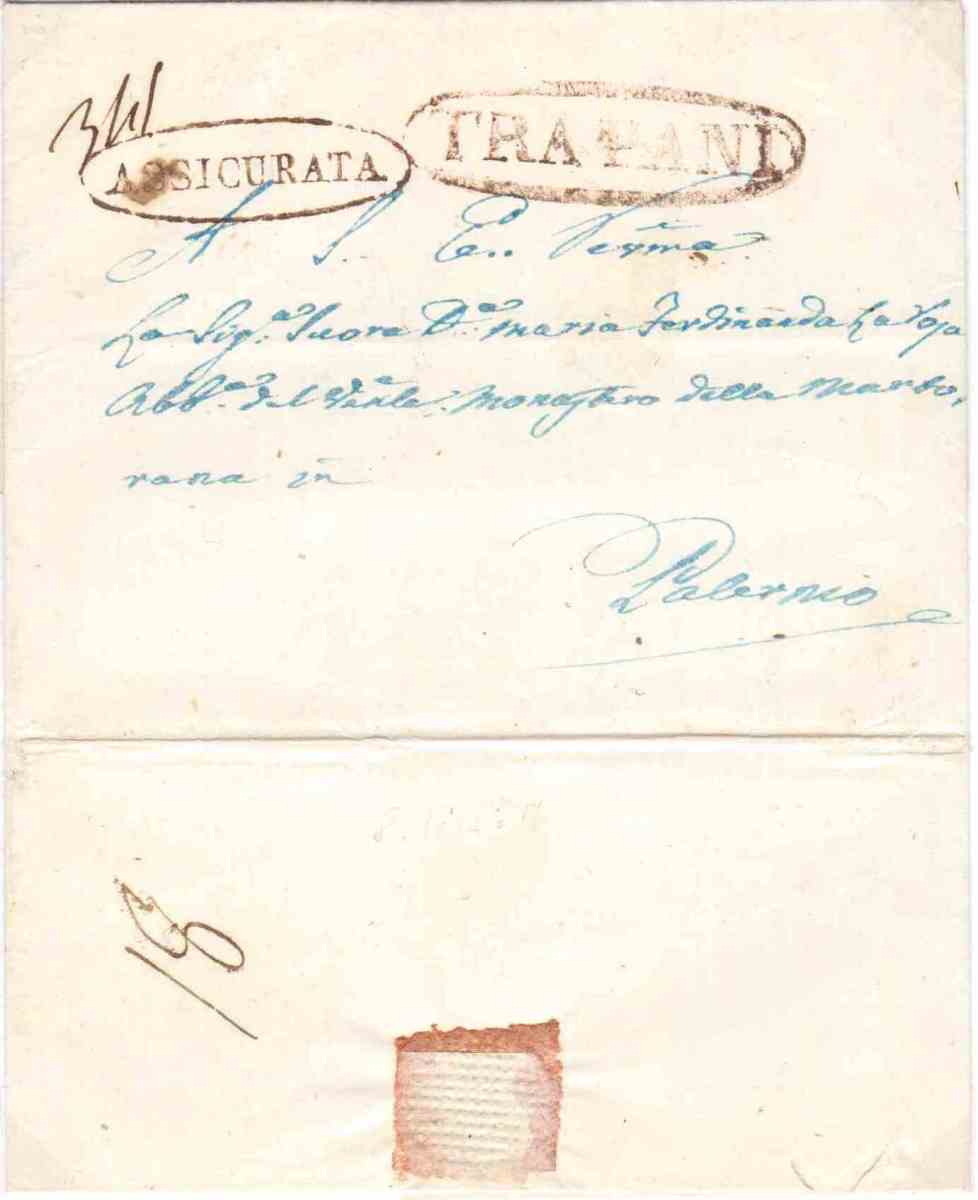 ASSICURATA
TRAPANI
A S. E. Reṽma
La Sig.ª Suora D.ª Maria Ferdinanda La
Abb.ª del Monastero della Marto,
rana in
Palermo